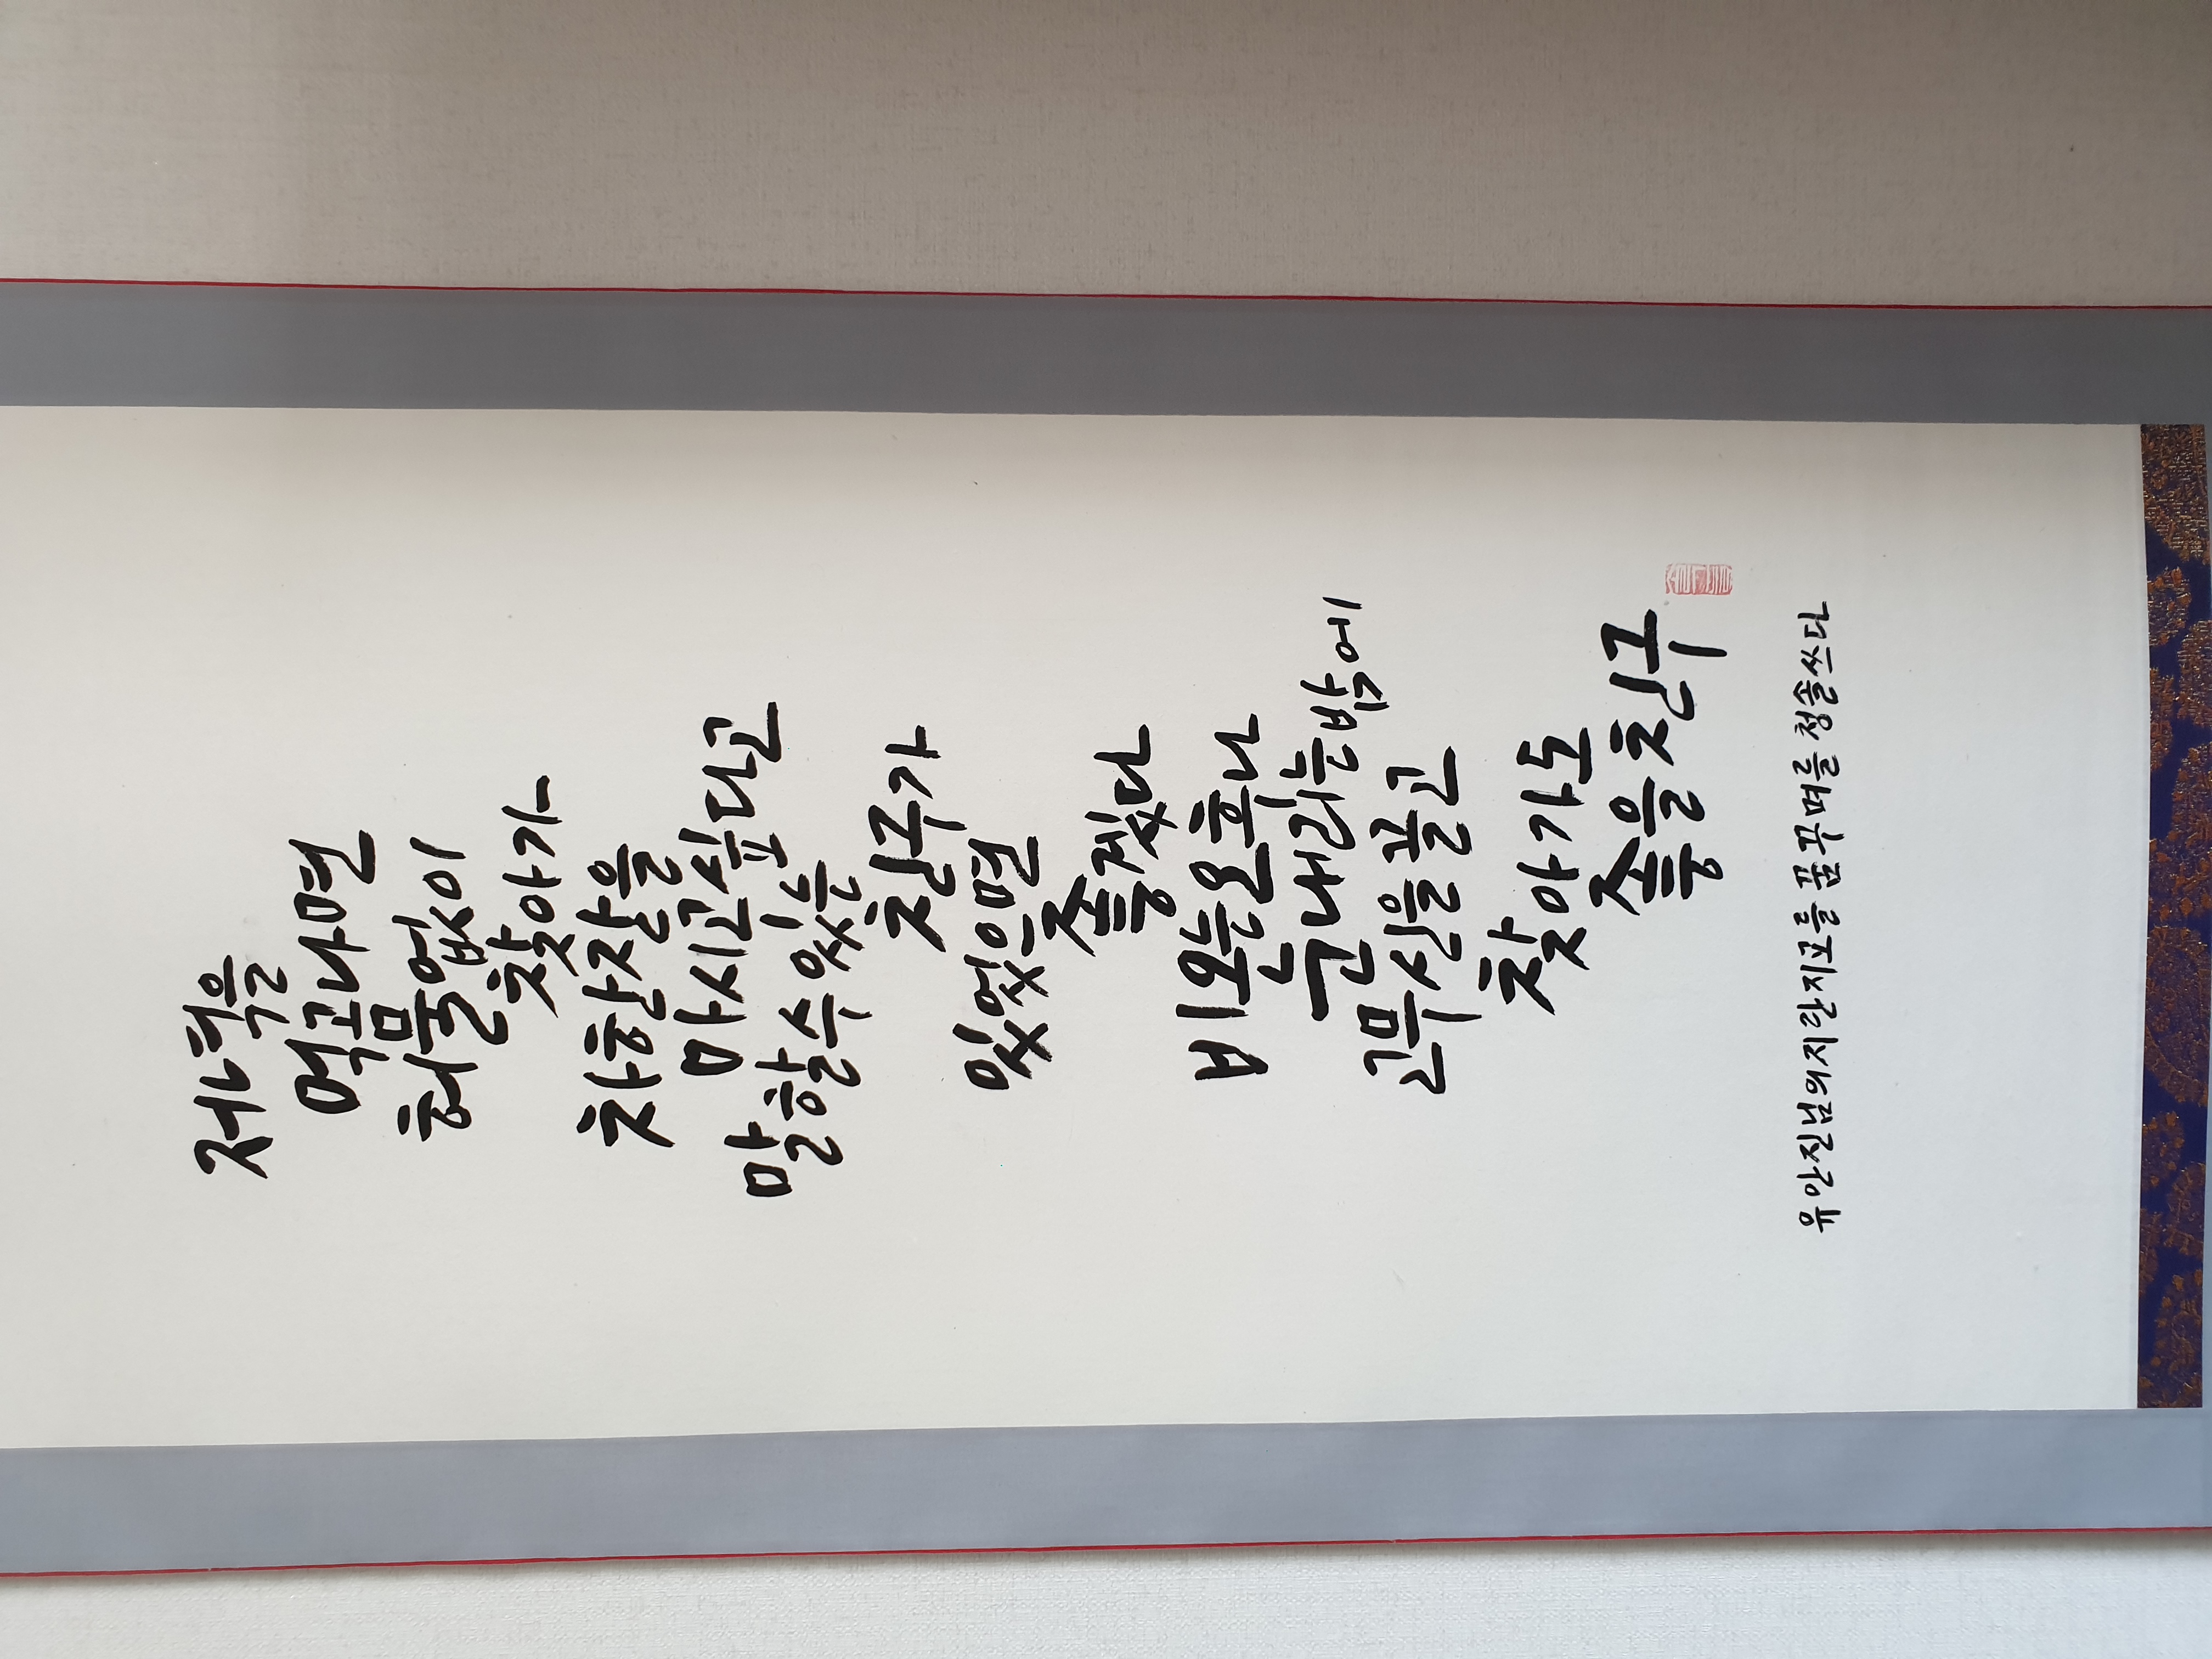 저녁을
먹고나면
허물없이
찾아가
차한잔을
마시고싶다고
말할수있는
친구가
있었으면
좋겠다
비오는오후나
눈내리는밤에
고무신을끌고
찾아가도
좋을친구
유안진님의지란지교를꿈꾸며를청솔쓰다